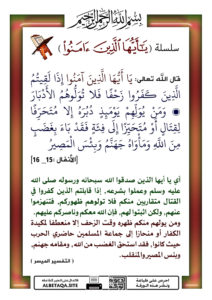 بسم الله الرحمن الرحيم
سلسلة (يَٰٓأَيُّهَا ٱلَّذِينَ ءَامَنُوا۟)
قال الله تعالى: يَا أَيُّهَا الَّذِينَ آمَنُوا إِذَا لَقِيتُمُ
الَّذِينَ كَفَرُوا زَحْفًا فَلَا تُوَلُّوهُمُ الْأَدْبَارَ
وَمَن يُوَلِّهِمْ يَوْمَئِذٍ دُبُرَهُ إِلَّا مُتَحَرِّفًا
لِّقِتَالٍ أَوْ مُتَحَيِّزًا إِلَىٰ فِئَةٍ فَقَدْ بَاءَ بِغَضَبٍ
مِّنَ اللَّهِ وَمَأْوَاهُ جَهَنَّمُ وَبِئْسَ الْمَصِيرُ
[الأنفال :15_ 16]
أي يا أيها الذين صدقوا الله سبحانه ورسوله صلى الله
عليه وسلم وعملوا بشرعه, إذا قابلتم الذين كفروا في
القتال متقاربين منكم فلا تولوهم ظهوركم, فتنهزموا
عنهم, ولكن اثبتوا لهم, فإن الله معكم وناصركم عليهم.
ومن يولهم منكم ظهره وقت الزحف إلا منعطفا لمكيدة
الكفار أو منحازا إلى جماعة المسلمين حاضري الحرب
حيث كانوا, فقد استحق الغضب من الله, ومقامه جهنم,
وبئس المصير والمنقلب.
( التفسير الميسر )
ALBETAQA.SITE